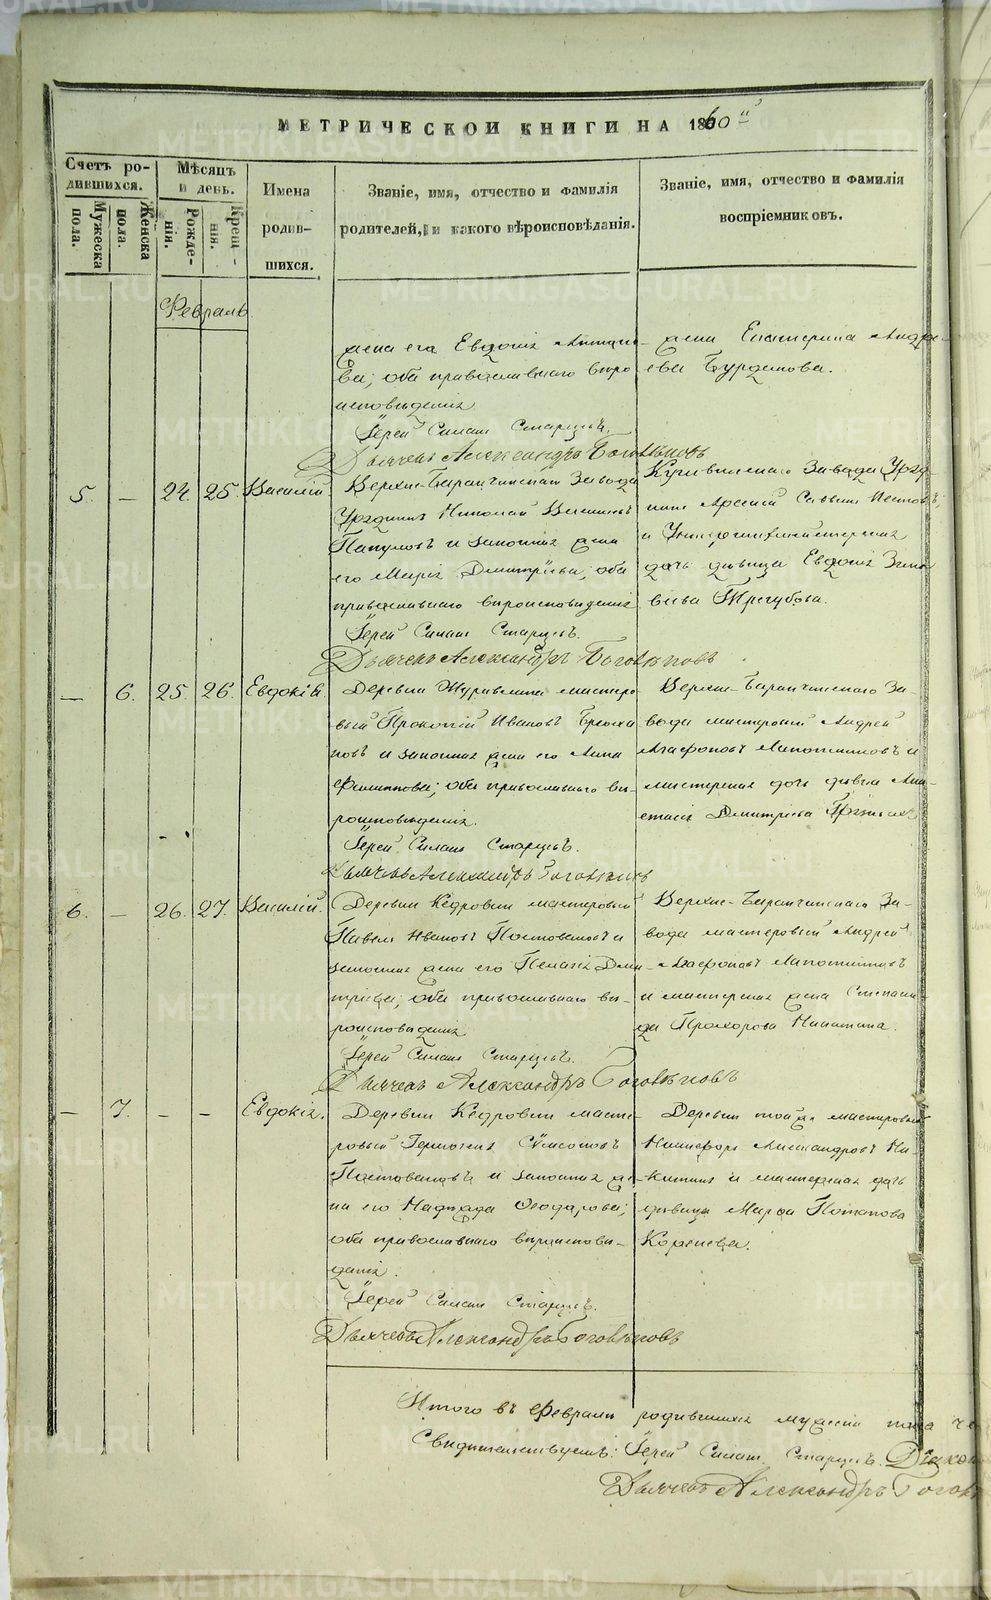 МЕТРИЧЕСКОЙ КНИГИ НА 1860й
Счетъ ро-
дившихся.
Мѣсяцъ
и день.
Имена
родив-
шихся.
Званіе, имя, отчество и фамилія
родителей, и какого вѣроисповѣданія.
Званіе, имя, отчество и фамилія
воспріемниковъ.
Мужеска
пола.
Женска
пола.
Рожде-
нія.
Крещ-
нія.
Февраль
жена его Евдокія
ва; оба православнаго вѣро
исповѣданія
Іерей Силинъ Старцевъ.
Дьячекъ Александръ Боголѣповъ
жена Екатерина Андре-
ева Бурдакова.
5. — 24. 25. Василій
Верхне-Баранчинскаго Завода
Урядникъ Николай
и законная жена
его Марія Дмитріева; оба
православнаго вѣроисповѣданія
Іерей Старцевъ.
Дьячекъ Александръ Боголѣповъ
Кушвинскаго Завода Уряд-
никъ Арсеній Саввинъ
и Унтершихтмейстерская
дочь дѣвица Евдокія
Трегубова.
— 6. 25. 26. Евдокія.
Деревни Журавлика мастеро
вый Прокопій Ивановъ
новъ и законная жена его Анна
Филиппова; оба православнаго вѣ-
роисповѣданія.
Іерей Старцевъ.
Дьячекъ Александръ Боголѣповъ
Верхне-Баранчинскаго За-
вода мастеровой Андрей
Агафоновъ Лапотниковъ и
мастерская дочь дѣвица Ана-
стасія Дмитріева
6. — 26. 27. Василій.
Деревни Кедровки мастеровый
Павелъ Ивановъ Постоваловъ и
законная жена его Пелагія Дми-
тріева; оба православнаго вѣ-
роисповѣданія
Іерей Старцевъ.
Дьячекъ Александръ Боголѣповъ
Верхне-Баранчинскаго За-
вода мастеровый Андрей
Агафоновъ Лапотниковъ
и мастерская жена Степани-
да Прохорова Никитина.
— 7. — — Евдокія.
Деревни Кедровки масте-
ровый Гермогенъ Симеоновъ
Постоваловъ и законная же-
на его Надежда Ѳеодорова;
оба православнаго вѣроисповѣ-
данія.
Іерей Старцевъ.
Дьячекъ Александръ Боголѣповъ
Деревни той же мастеровый
Никифоръ Александровъ Ни-
китинъ и мастерская дочь
дѣвица Марѳа Потапова
Коренева.
Итого въ Февралѣ родившихся мужеска пола че
Свидѣтельствуемъ: Іерей Старцевъ. Діакон
Дьячекъ Александръ Боголѣ